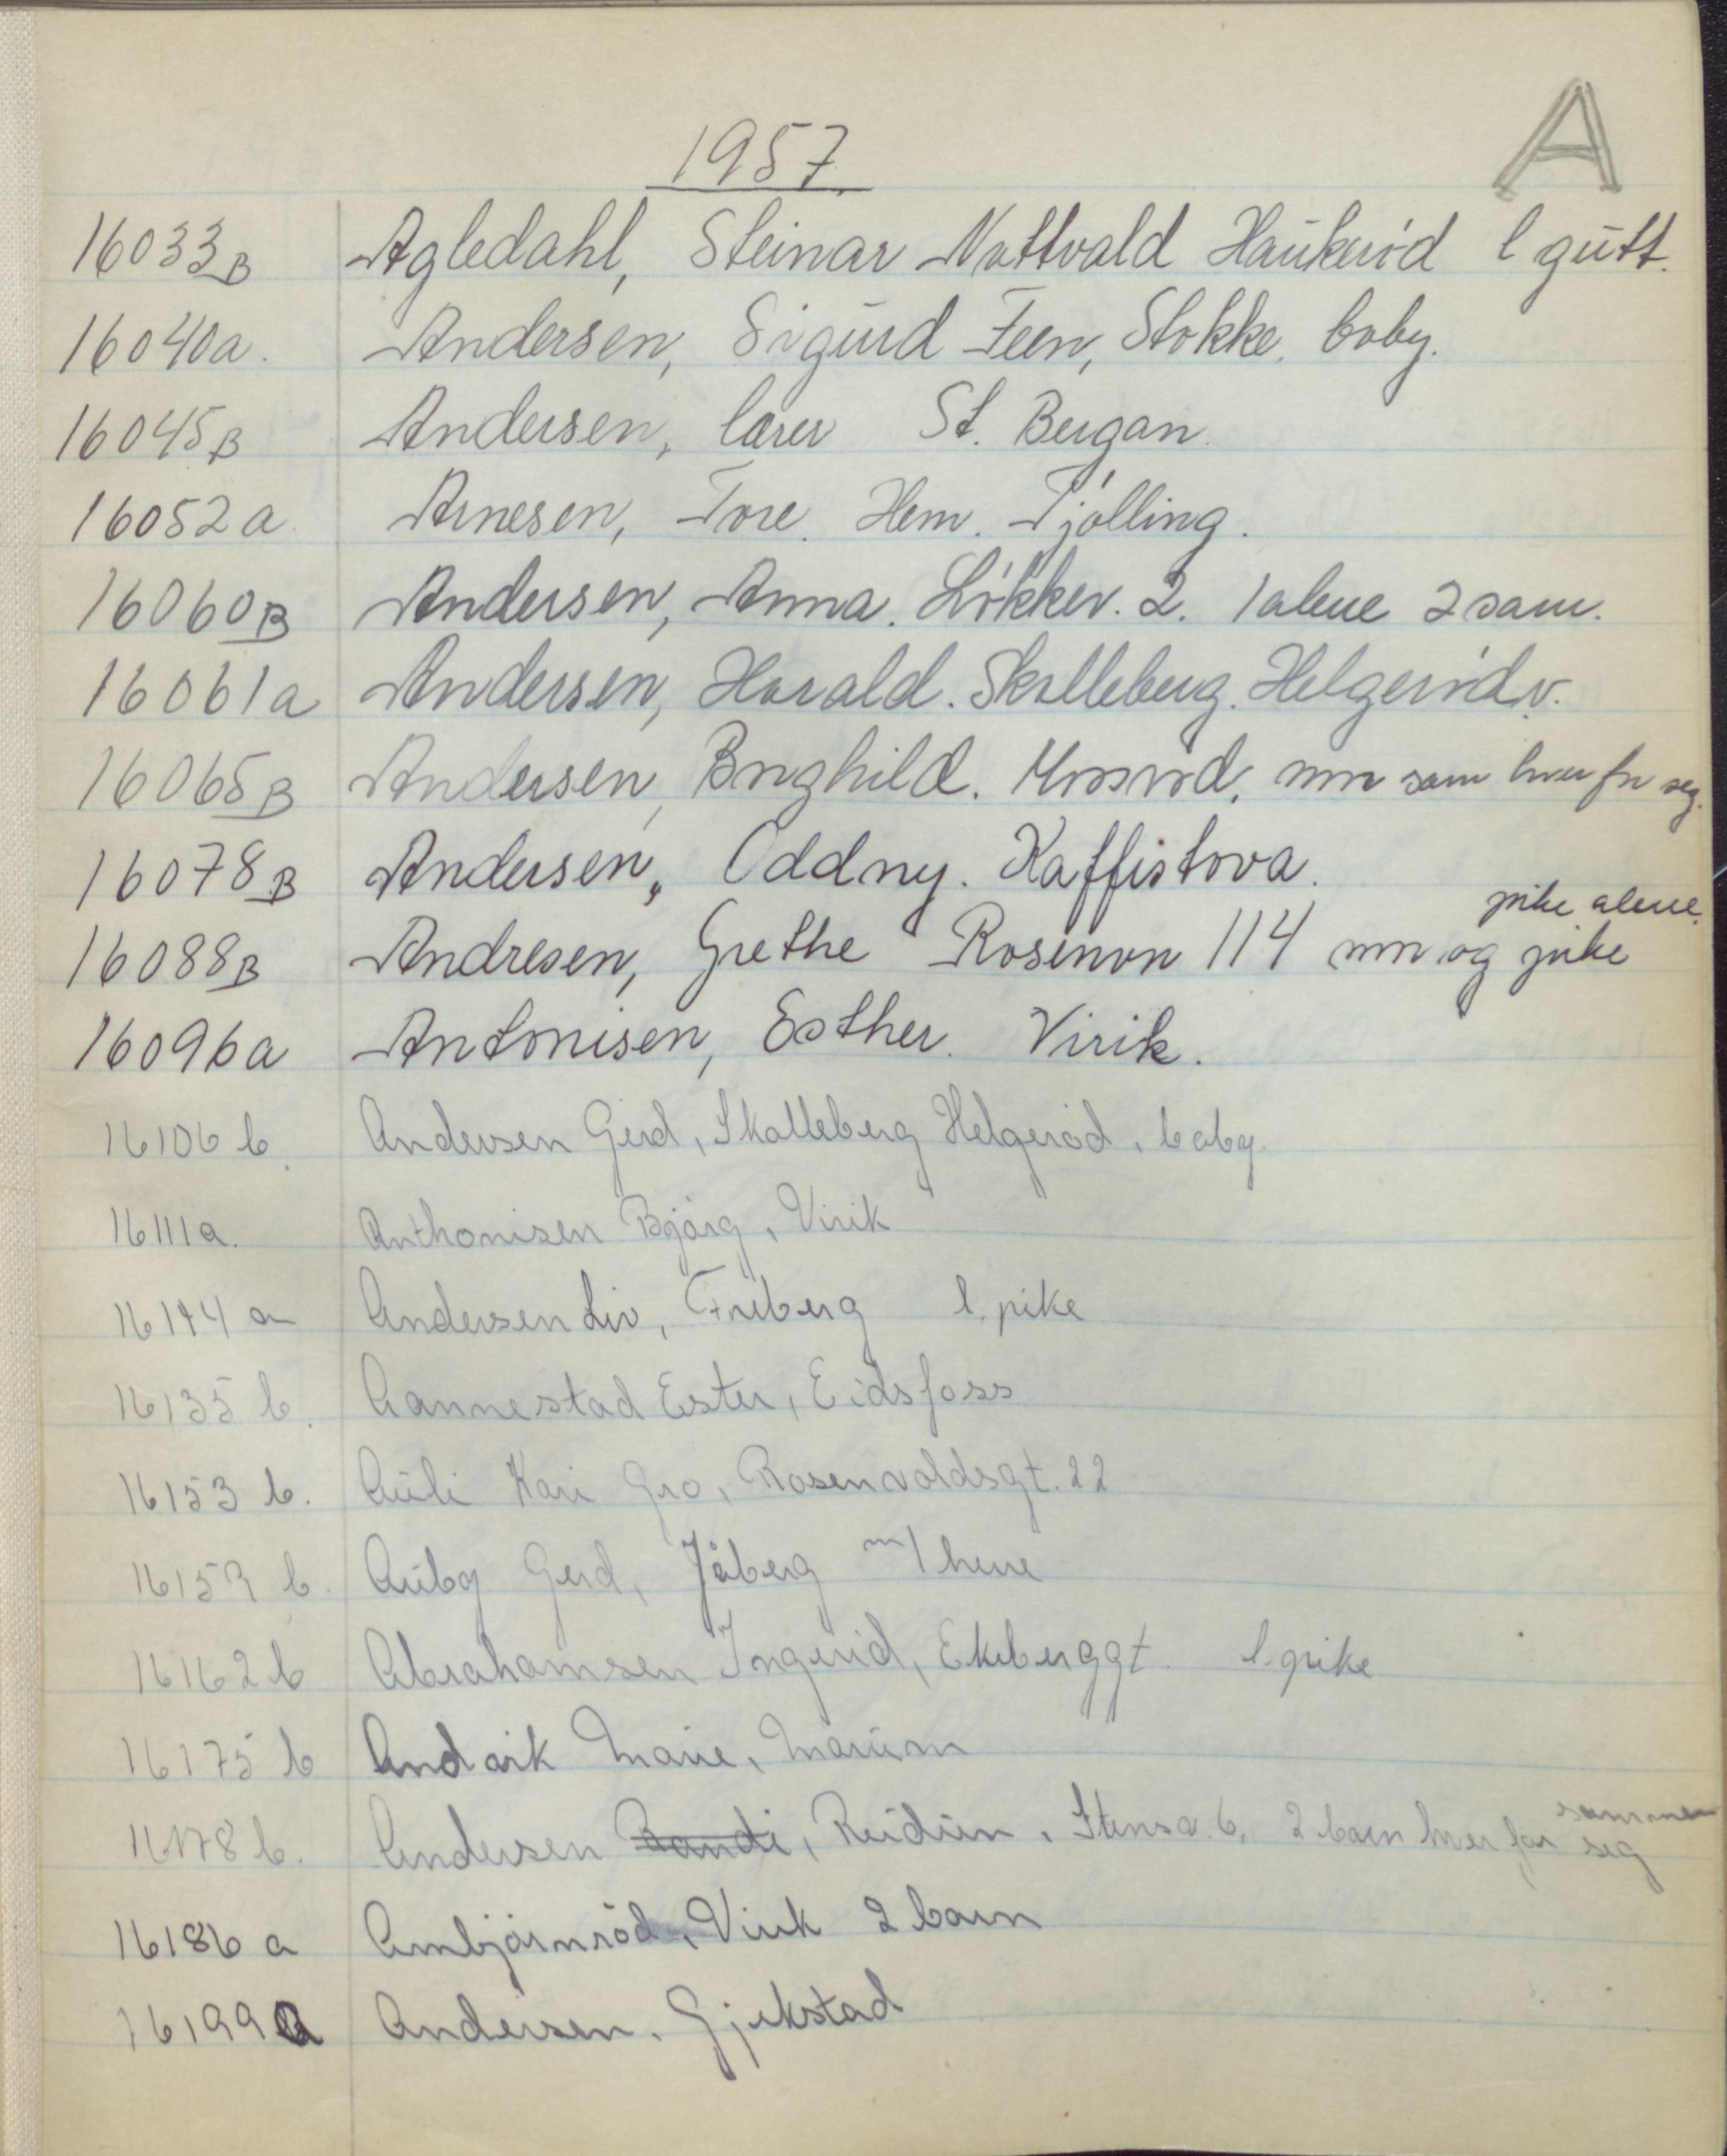 A
1957.
16033B Agledahl, Steinar Nattvald Haukerød 1 gutt.
16040a. Andersen, Sigurd Feen, Stokke. baby.
16045B Andersen, lærer St. Bergan.
16052a Arnesen, Tore. Hem. Tjølling.
16060B Andersen, Anna.Løkkev. 2. 1 alene 2 sam.
16061a Andersen, Harald. Skalleberg. Helgerødv.
16065B Andersen, Borghild. Mosserød, mor sam hver for seg.
16078B Andersen, Oddny. Kaffistova.
pike alene.
16088B Andresen, Grethe Rosenvn 114 mor og pike
16096a Antonisen, Esther. Virik.
16106 b. Andersen Gerd, Skalleberg Helgerød, baby.
16111a. Anthonisen Bjørg, Virik
16144 a Andersen Liv, Freberg 1. pike
16135 b. Aannestad Ester, Eidsfoss
16153 b. Auli Kari Gro, Rosenvoldsgt. 22
16159 b. Auby Gerd, Jåberg m/ herre
16162 b Abrahamsen Ingerid, Ekeberggt. 1. pike
16175 b Andvik Marie, Marum
sammen
16178 b. Andersen Randi, Reidun, Stensv. 6, 2 barn hver for seg
16186 a Ambjørnrød, Virik 2 barn
16199 a Andersen, Gjekstad